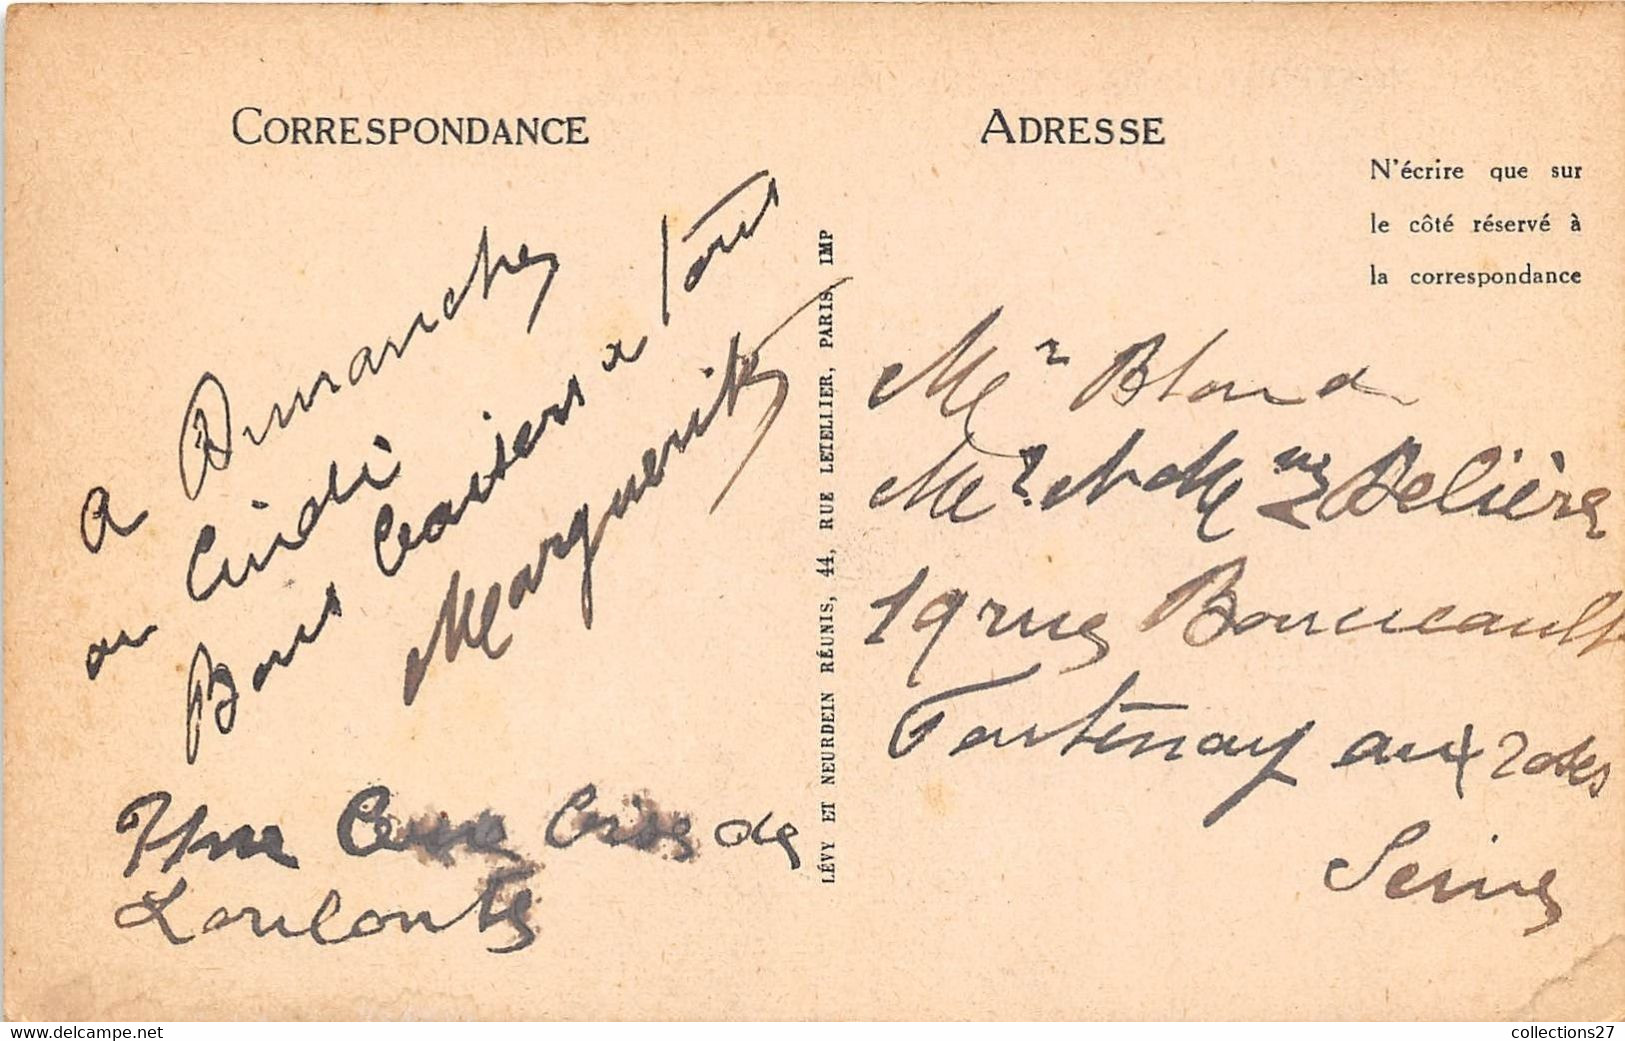 CORRESPONDANCE
a Dimanche
ou Lundi
Bons Baisers a tous
Marguerite
Une de
Louloute
LÉVY ET NEURDEIN RÉUNIS, 44, RUE LETELLIER, PARIS, IMP
ADRESSE
N'écrire que sur
le côté réservé à
la correspondance
Mr Blond
Mr et Mme Belière
19 rue Boucicault
Fontenay aux roses
Seine
collections27